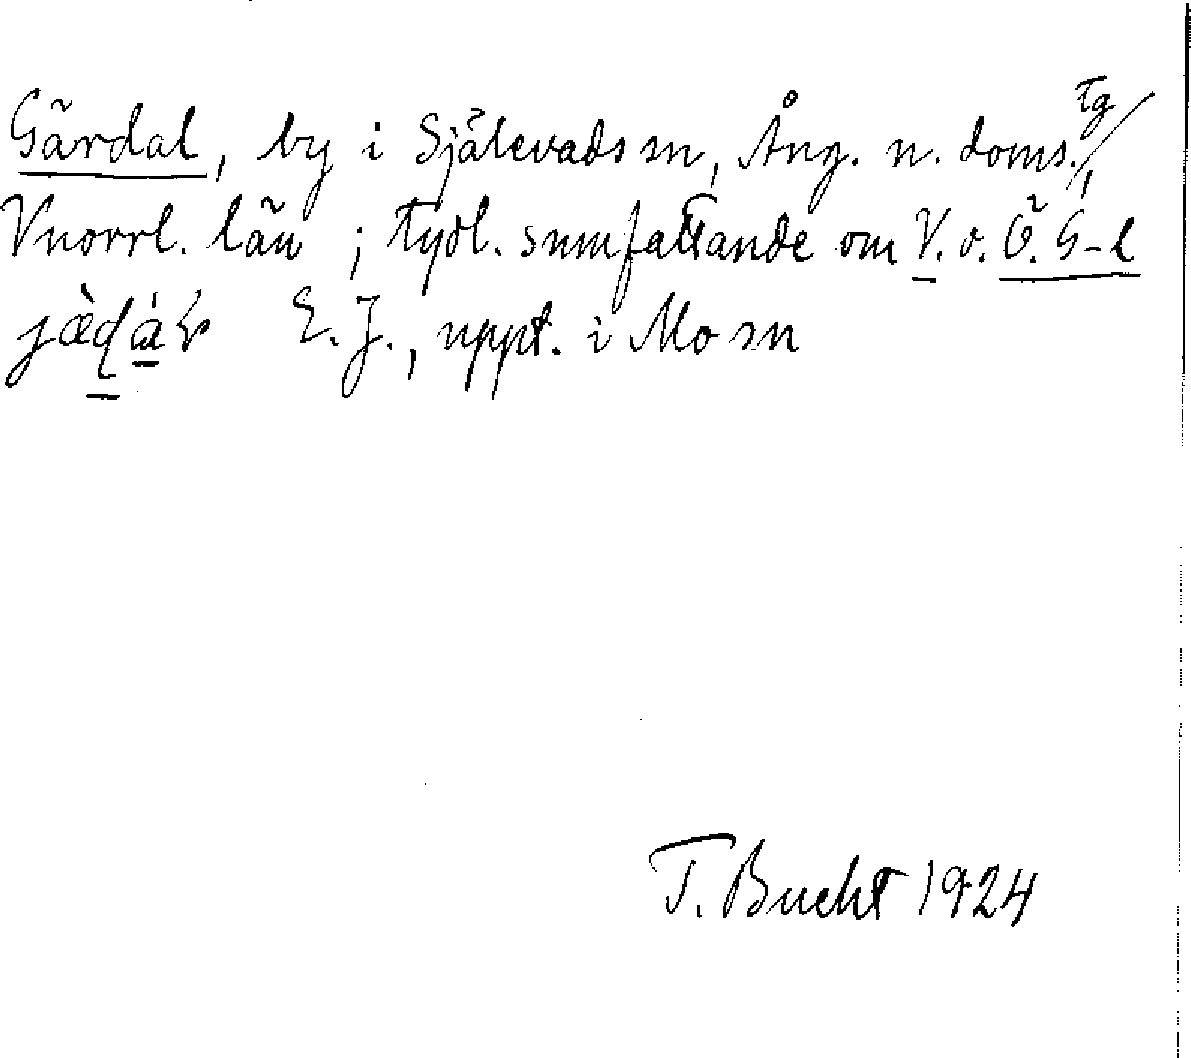 Gärdal, by i Själevads sn, Ång. n. doms. tg,
Vnorrl. län ; tydl. smnfattande om V. o. Ö. G-l
E. J., uppt. i Mo sn
T. Bucht 1924